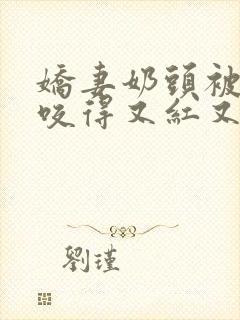 嬌妻奶頭被
咬得又紅又
劉瑾